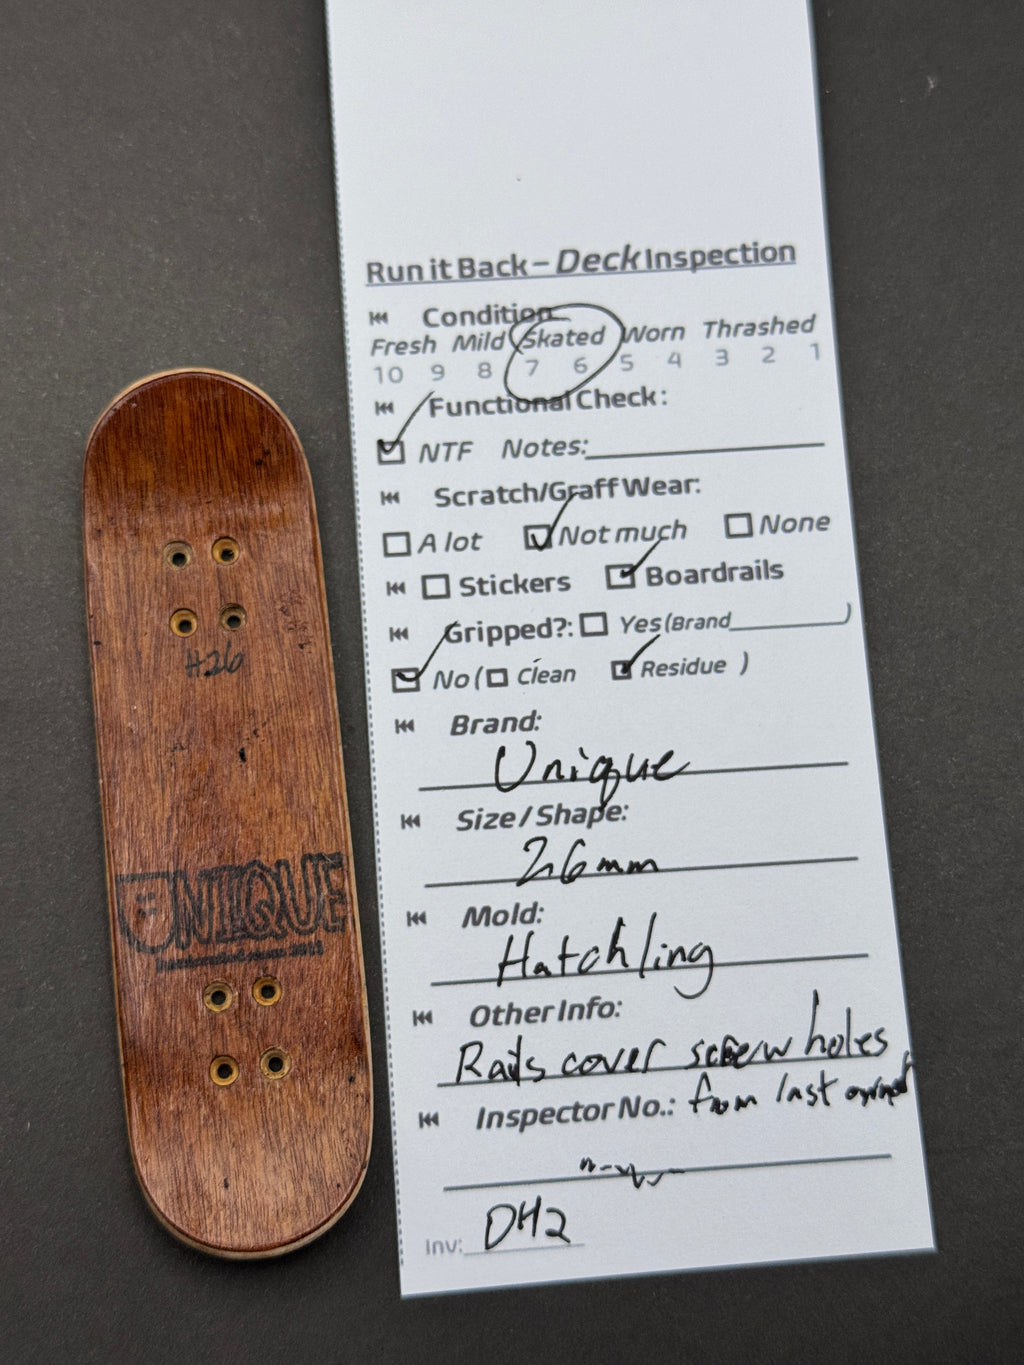 H26
UNIQUE
Run it Back – Deck Inspection
Condition
Fresh Mild Skated Worn Thrashed
10 9 8 7 6 5 4 3 2 1
Functional Check:
NTF Notes:
Scratch/Graff Wear:
A lot Not much None
Stickers Boardrails
Gripped?: Yes (Brand )
No ( Clean Residue )
Brand:
Unique
Size / Shape:
26mm
Mold:
Hatchling
Other Info:
Rails cover screw holes
from last owner
Inspector No.:
Inv: DH2